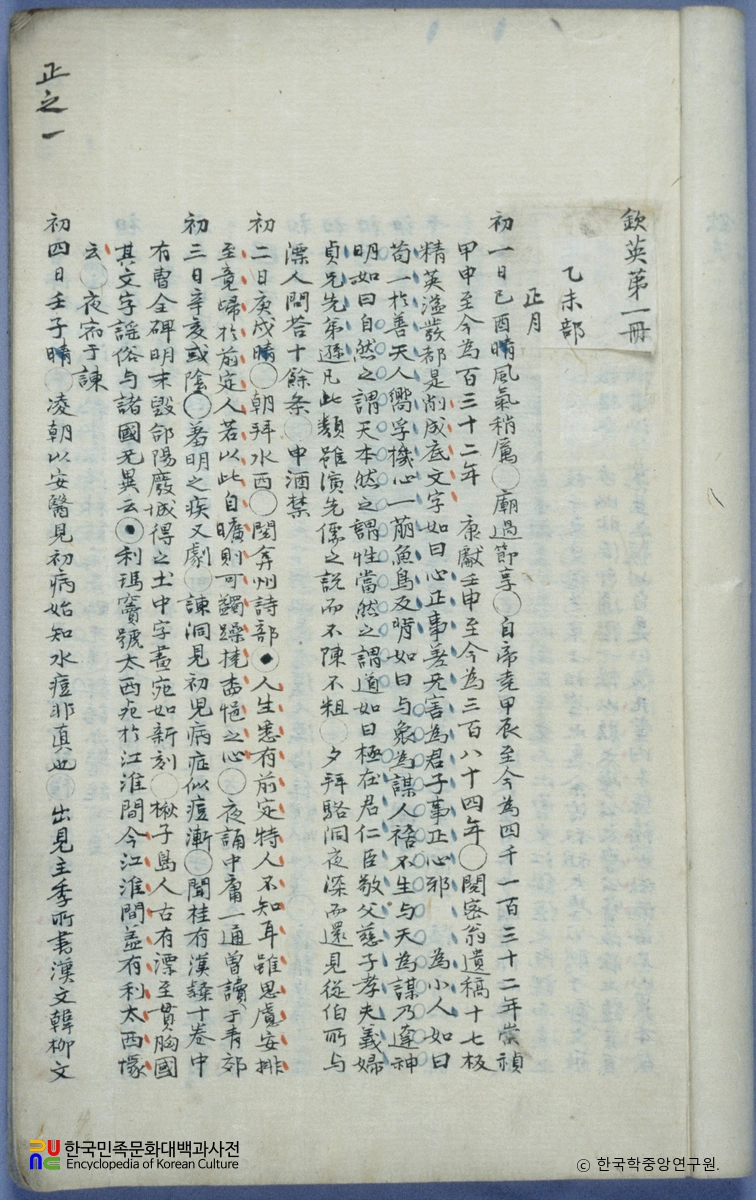 欽英第一冊
乙未部
正月
初一日己酉晴風氣稍厲○廟過節享○自帝堯甲辰至今為四千一百三十二年崇禎
甲申至今為百三十二年 康獻壬申至今為三百八十四年○閱密翁遺稿十七板
精英溢發都是削成底文字如曰心正事差无害為君子事正心邪 為小人如曰
苟一於善天人嚮孚機心一萠魚鳥反背如曰与象為謀人禧不生与天為謀乃逢神
明如曰自然之謂天本然之謂性當然之謂道如曰極在君仁臣敬父慈子孝夫義婦
貞兄先弟遜凡此類雖演先儒之說而不陳不粗○夕拜駱洞夜深而還見從伯所与
漂人問答十餘条○申酒禁
初二日庚戌晴○朝拜水西○閱弇州詩部●人生悉有前定特人不知耳雖思慮安排
至竟歸於前定人若以此自曠則可蠲躁撓悒之心○夜誦中庸一通曾讀于青郊
初三日辛亥或陰○蕃明之疾又劇○諫洞見初兒病症似痘漸○聞桂有漢隷十卷中
有曹全碑明末毁郃陽廢城得之土中字畫宛如新刻○楸子島人古有漂至貫胸國
其文字謠俗与諸國无異云●利瑪竇號太西死於江淮間今江淮間盖有利太西塚
云○夜宿于諫
初四日壬子晴○凌朝以安醫見初病始知水痘非真也○出見主季所書漢文韓柳文
正之一
한국민족문화대백과사전
Encyclopedia of Korean Culture
ⓒ 한국학중앙연구원.